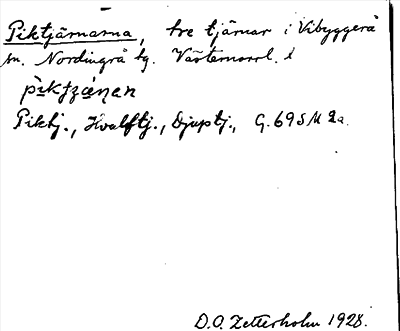 Piktjärnarna, tre tjärnar i Vibyggerå
sn. Nordingrå tg. Västernorrl. l
piktzánen
Piktj., Hvalftj., Djuptj., G. 69 S M 2a.
D.O. Zetterholm 1928.